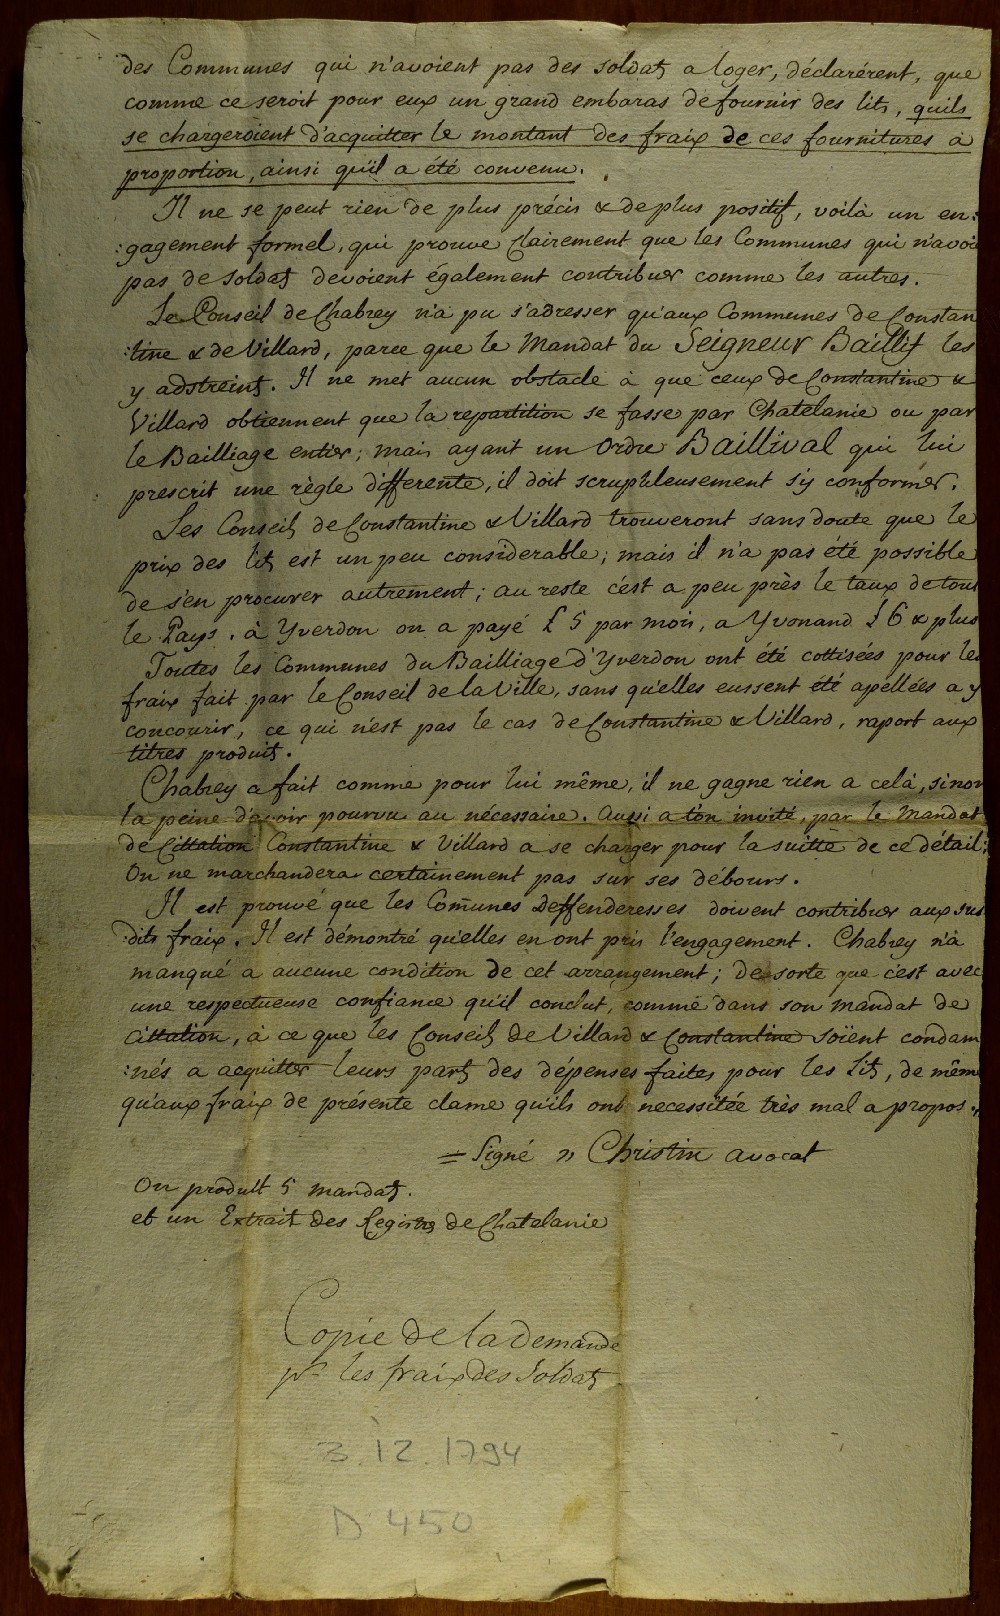 des Communes qui n'avoient pas des soldats a loger, déclarérent, que
comme ce seroit pour eux un grand embaras de fournir des lits, quils
se chargeroient d'acquitter le montant des fraix de ces fournitures à
proportion, ainsi qu'il a été convenu.
Il ne se peut rien de plus précis & de plus positif, voilà un en:
:gagement formel, qui prouve clairement que les Communes qui n'avoi
pas de soldats devoient également contribuer comme les autres.
Le Conseil de Chabrey n'a pu s'adresser qu'aux Communes de Constan
:tine & de Villard, parce que le Mandat du Seigneur Baillif les
y adstreint. Il ne met aucun obstacle à que ceux de Constantine &
Villard obtiennent que la repartition se fasse par Chatelanie ou par
le Bailliage entier; mais ayant un Ordre Baillival qui lui
prescrit une règle differente, il doit scrupuleusement s'y conformer.
Les Conseils de Constantine & Villard trouveront sans doute que le
prix des lits est un peu considerable; mais il n'a pas été possible
de s'en procurer autrement; au reste c'est a peu près le taux de tout
le Pays. à Yverdon on a payé £ 5 par mois, a Yvonand £ 6 & plus
Toutes les Communes du Bailliage d'Yverdon ont été cottisées pour les
fraix fait par le Conseil de la Ville, sans qu'elles eussent été apellées a y
concourir, ce qui n'est pas le cas de Constantine & Villard, raport aux
titres produits.
Chabrey a fait comme pour lui même, il ne gagne rien a celà, sinon
la peine d'avoir pourvu au nécessaire. Aussi a t'on invité, par le Mandat
de Cittation Constantine & Villard a se charger pour la suitte de ce détail:
On ne marchandera certainement pas sur ses débours.
Il est prouvé que les Com̃unes Deffenderesses doivent contribuer aux sus
:dits fraix. Il est démontré qu'elles en ont pris l'engagement. Chabrey n'a
manqué a aucune condition de cet arrangement; De sorte que c'est avec
une respectueuse confiance qu'il conclut, comme dans son mandat de
Cittation, à ce que les Conseils de Villard & Constantine soïent condam
:nés a acquitter leurs parts des dépenses faites pour les Lits, de même
qu'aux fraix de présente clame qu'ils ont necessitée très mal a propos.
= Signé " Christin avocat
On produit 5 mandats.
et un Extrait des Registres de Chatelanie
Copie de la Demande
pr les fraix des Soldats
3.12.1794
D 450